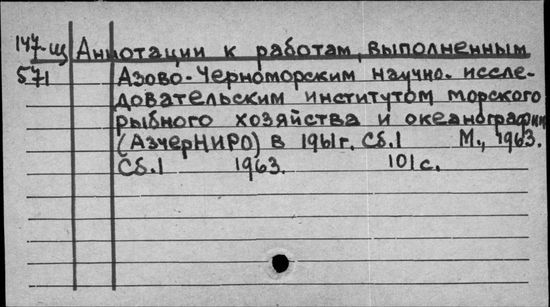 147-щ Аннотации к работам, выполненным
571 Азово-Черноморским научно-иссле-
довательским институтом морского
рыбного хозяйства и океанографии
(АзчерНИРО) в 1961г. Сб.1 М., 1963.
Сб.1 1963. 101с.